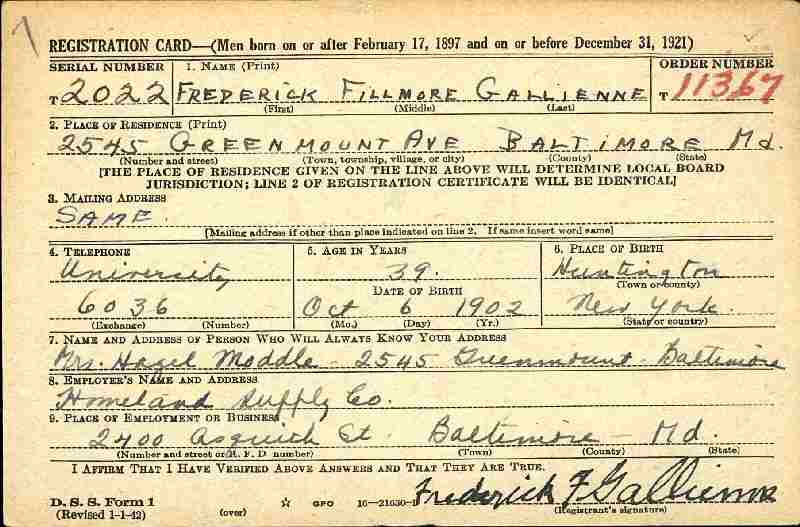 REGISTRATION CARD—(Men born on or after February 17, 1897 and on or before December 31, 1921)
SERIAL NUMBER 1. NAME (Print) ORDER NUMBER
T 2022 FREDERICK FILLMORE GALLIENNE T 11367
(First) (Middle) (Last)
2. PLACE OF RESIDENCE (Print)
2545 GREENMOUNT AVE BALTIMORE Md.
(Number and street) (Town, township, village, or city) (County) (State)
[THE PLACE OF RESIDENCE GIVEN ON THE LINE ABOVE WILL DETERMINE LOCAL BOARD
JURISDICTION; LINE 2 OF REGISTRATION CERTIFICATE WILL BE IDENTICAL]
3. MAILING ADDRESS
SAME.
[Mailing address if other than place indicated on line 2. If same insert word same]
4. TELEPHONE 5. AGE IN YEARS 6. PLACE OF BIRTH
University 39. Huntington
DATE OF BIRTH (Town or county)
6036 Oct 6 1902 New York.
(Exchange) (Number) (Mo.) (Day) (Yr.) (State or country)
7. NAME AND ADDRESS OF PERSON WHO WILL ALWAYS KNOW YOUR ADDRESS
Mrs. Hazel Moddle 2545 Greenmount Baltimore
8. EMPLOYER'S NAME AND ADDRESS
Homeland Supply Co.
9. PLACE OF EMPLOYMENT OR BUSINESS
2400 Asquith St. Baltimore – Md.
(Number and street or R. F. D number) (Town) (County) (State)
I AFFIRM THAT I HAVE VERIFIED ABOVE ANSWERS AND THAT THEY ARE TRUE.
Frederick F Gallienne
D. S. S. Form 1 ☆ GPO 16—21630-1 (Registrant's signature)
(Revised 1-1-42) (over)